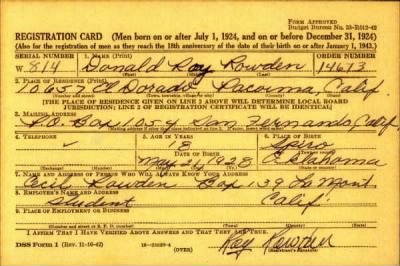 FORM APPROVED
Budget Bureau No. 33-R012-42
REGISTRATION CARD (Men born on or after July 1, 1924, and on or before December 31, 1924)
(Also for the registration of men as they reach the 18th anniversary of the date of their birth on or after January 1, 1943.)
SERIAL NUMBER 1. NAME (Print) ORDER NUMBER
W. 814 Donald Ray Rowden 14673
(First) (Middle) (Last)
2. PLACE OF RESIDENCE (Print)
10657 El Dorado, Pacoima, Calif.
(Number and street) (Town, township, village, or city) (County) (State)
[THE PLACE OF RESIDENCE GIVEN ON LINE 2 ABOVE WILL DETERMINE LOCAL BOARD
JURISDICTION; LINE 2 OF REGISTRATION CERTIFICATE WILL BE IDENTICAL]
3. MAILING ADDRESS
P.O. Box 1059 San Fernando, Calif.
[Mailing address if other than place indicated on line 2. If same insert word same]
4. TELEPHONE 5. AGE IN YEARS 6. PLACE OF BIRTH
18 Spiro
DATE OF BIRTH (Town or county)
May 21, 1928 Oklahoma
(Exchange) (Number) (Mo.) (Day) (Yr.) (State or country)
7. NAME AND ADDRESS OF PERSON WHO WILL ALWAYS KNOW YOUR ADDRESS
Cecil Rowden Box 139 La Mont,
8. EMPLOYER'S NAME AND ADDRESS
Student Calif.
9. PLACE OF EMPLOYMENT OR BUSINESS
(Number and street or R. F. D. number) (Town) (County) (State)
I AFFIRM THAT I HAVE VERIFIED ABOVE ANSWERS AND THAT THEY ARE TRUE.
DSS Form 1 (Rev. 11-16-42) (OVER) Ray Rowden